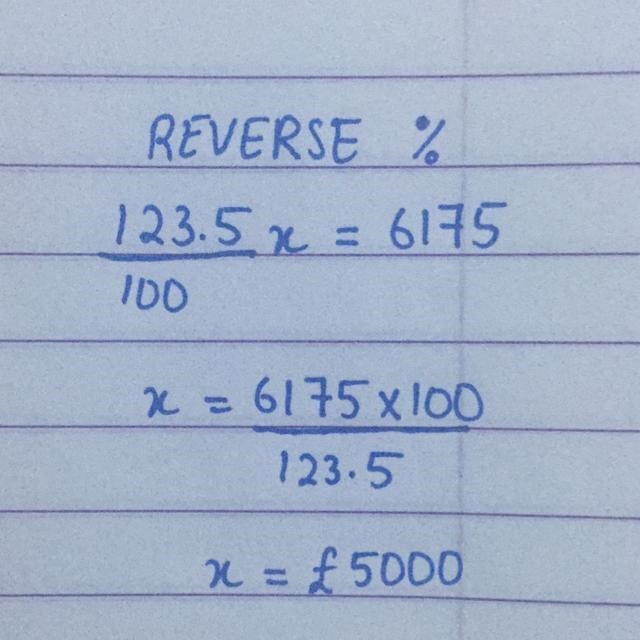 REVERSE %
123.5 x = 6175
100
x = 6175 x 100
123.5
x = £5000